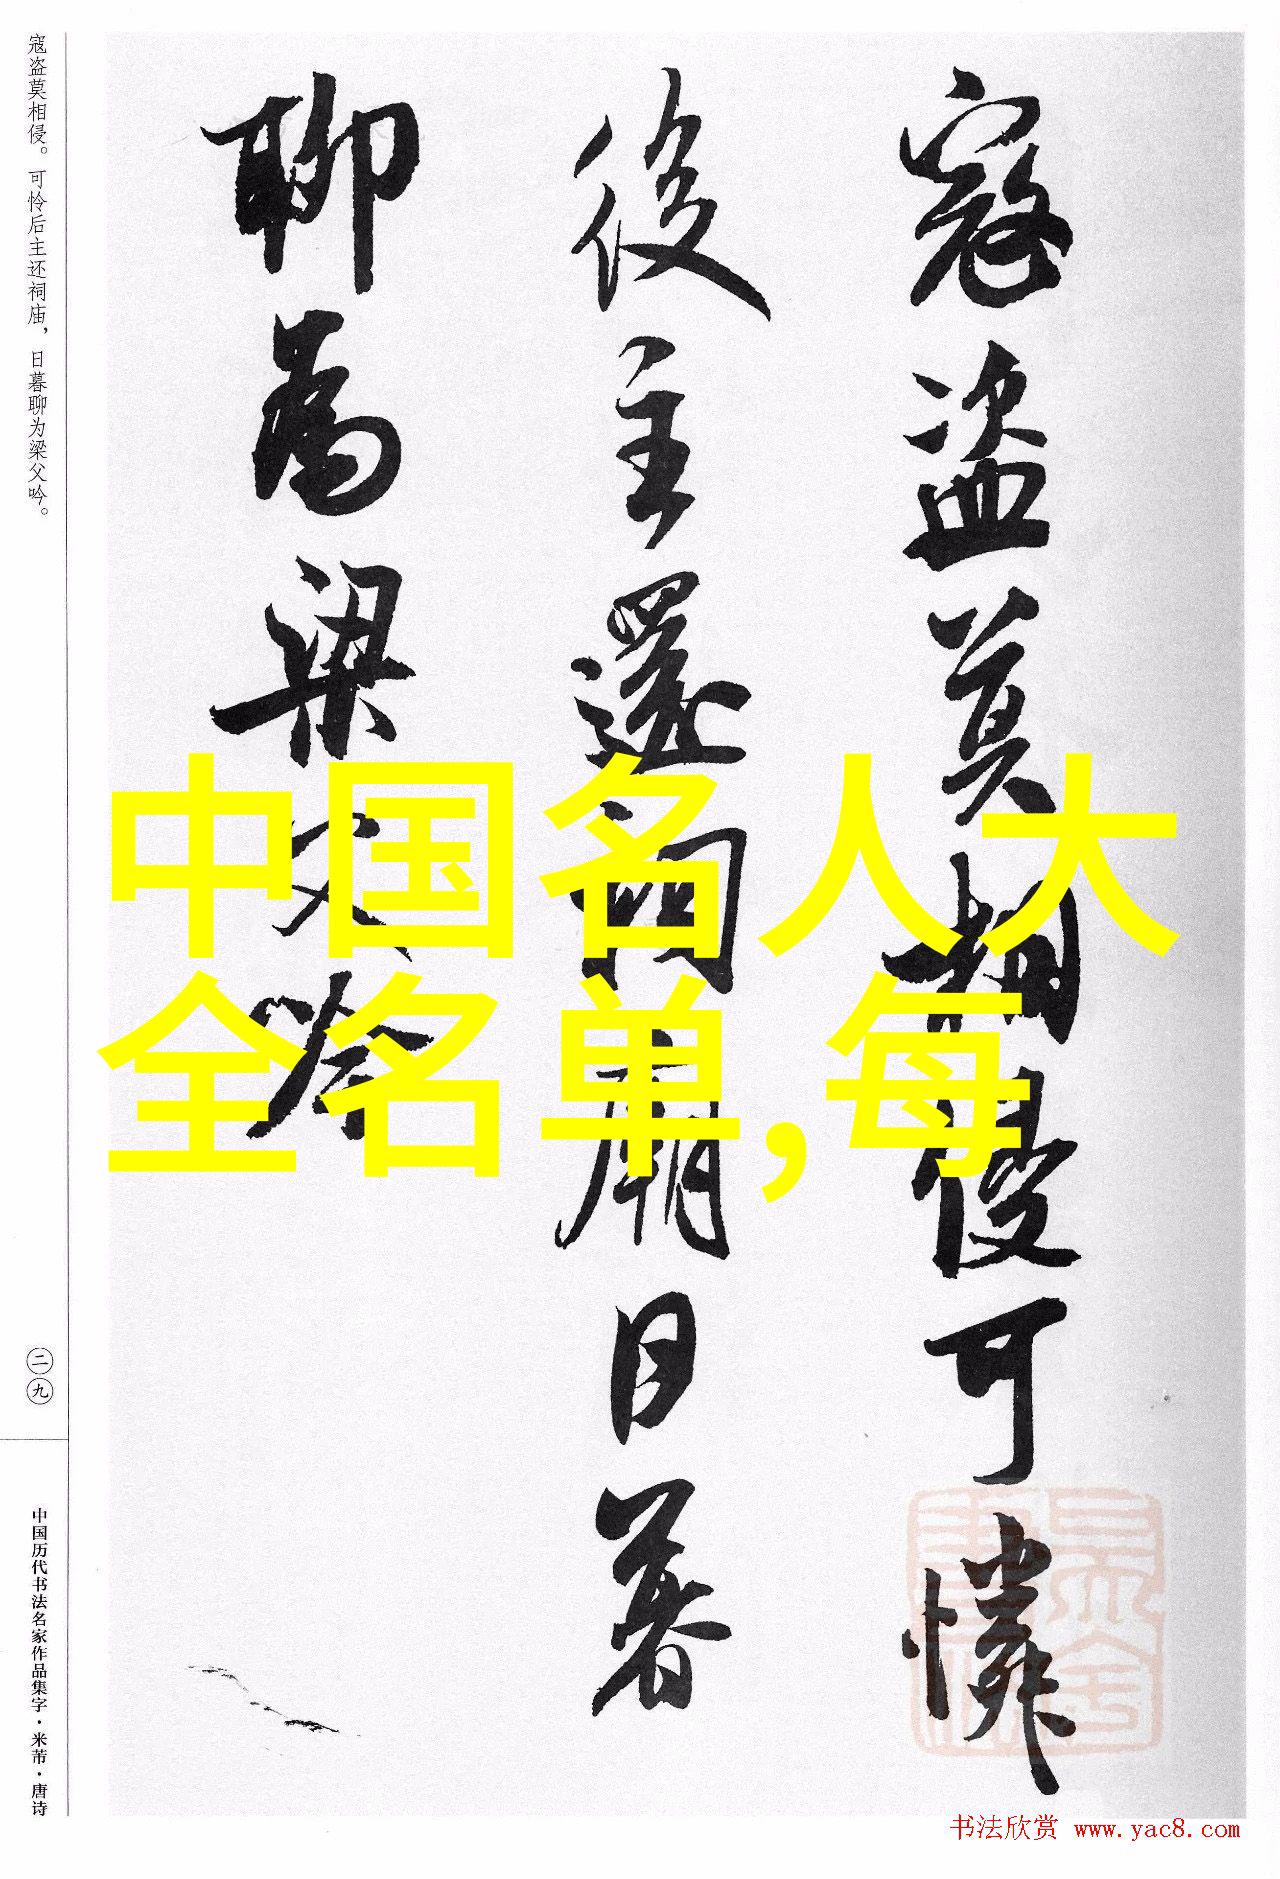 寇盗莫相侵。可怜后主还祠庙，日暮聊为梁父吟。
寇盗莫相侵可憐
後主還祠廟日暮
聊為梁父吟
中国名人大
全名单,每
二九
中国历代书法名家作品集字·米芾·唐诗
书法欣赏 www.yac8.com